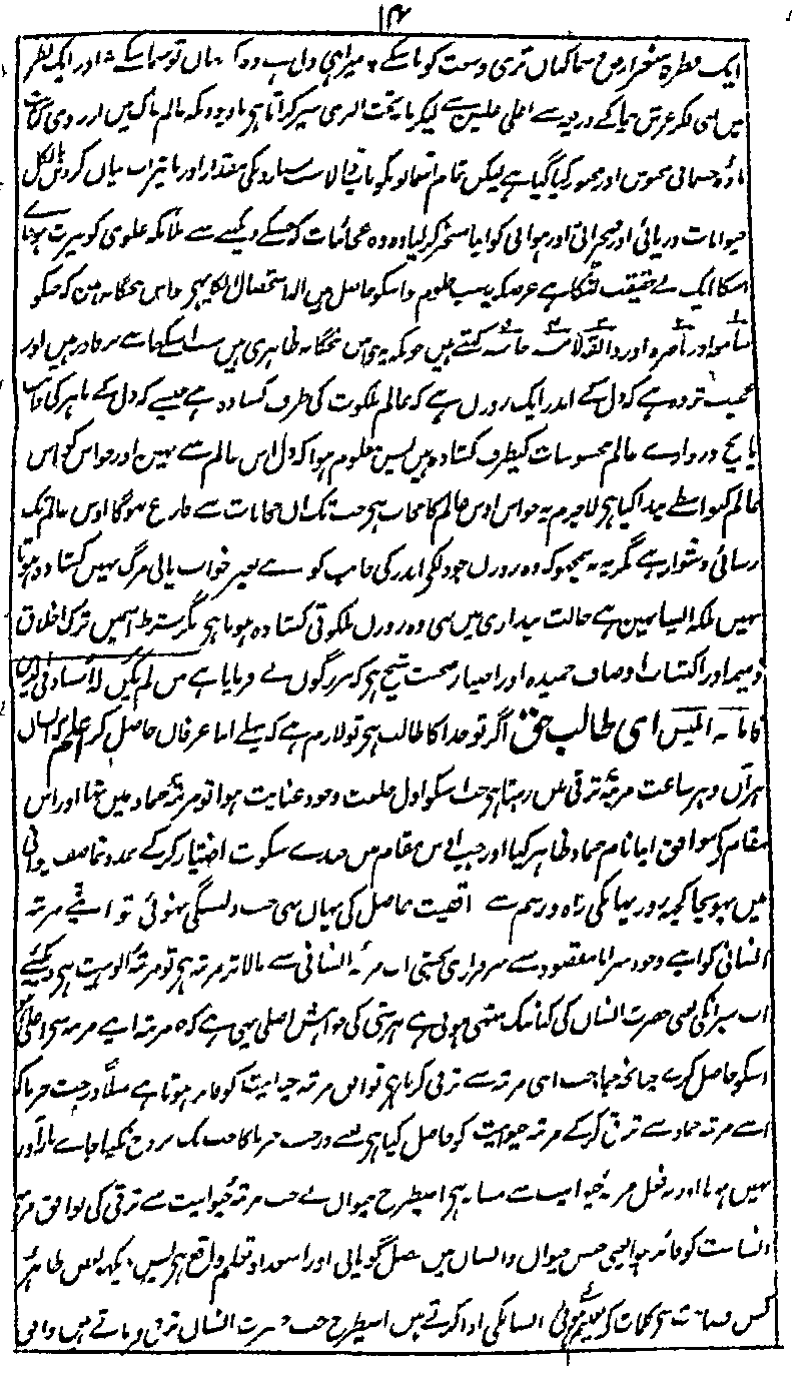 ۱۴
ایک قطرہ منی ارض و سما کہاں تری وسعت کو پا سکے ٭ میرا ہی دل ہے وہ کہ جہاں تو سما سکے ٭ اور ایک نظر
میں اسی فکر عرش پیما کے ذریعہ سے اعلی علیین سے لیکر تا تحت الثری سیر کر آتا ہی باوجودیکہ عالم خاک میں اور
مادہ جسمانی محبوس اور مجبور کیا گیا ہے لیکن تمام آسمانونکو ناپ ڈالا ہے ستارونکی مقدار اور تاثیرات بیان کردیں کل
حیوانات دریائی اور صحرائی اور ہوائی کو اپنا مسخر کر لیا وہ وہ عجائبات کہ جسکے دیکھنے سے ملائکہ علوی کو حیرت ہو جائے
اسکا ایک بے حقیقت لٹکا ہے غرضکہ یہ سب علوم جو اسکو حاصل ہیں اسکا استعمال الکا یہی حواس پنجگانہ ہیں کہ جسکو
سامعہ اور باصرہ اور ذائقہ لامسہ شامہ کہتے ہیں جو کہ یہ حواس پنجگانہ ظاہری ہیں سب اسکے سے برآمد ہیں اور
عجیب تر وہ ہے کہ دل کے اندر ایک روزن ہے کہ عالم ملکوت کی طرف کشادہ ہے جیسے کہ دل کے باہر کی جانب
پانچ دروازے عالم محسوسات کیطرف کشادہ ہیں پس معلوم ہوا کہ دل اس عالم سے نہیں اور حواس کو اس
عالم کیواسطے پیدا کیا ہی لاجرم یہ حواس اوس عالم کا حجاب ہی جب تک ان حجابات سے فارغ نہوگا اوس عالم تک
رسائی دشوار ہے مگر یہ نہ سمجھو کہ وہ روزن جو دلکی اندر کی جانب کو ہے بغیر خواب یا بی مرگ نہیں کشادہ ہوتا
نہیں بلکہ ایسا نہین ہے حالت بیداری میں بھی وہ روزن ملکوتی کشادہ ہوتا ہی مگر شرط اسمیں ترک اخلاق
ذمیمہ اور اکتساب اوصاف حمیدہ اور اختیار صحبت شیخ ہی کہ بزرگوں نے فرمایا ہے من لم یکن لا استاد فی الدین
فامامہ ابلیس ای طالب حق اگر تو خدا کا طالب ہی تو لازم ہے کہ پہلے اپنا عرفان حاصل کر اعلم کہ انسان
ہر آن و ہر ساعت مرتبہ ترقی میں رہتا ہی جب اسکو اول خلعت وجود عنایت ہوا تو مرتبہ جماد میں تھا اور اس
مقام کے موافق اپنا نام جماد ظاہر کیا اور جب اس مقام میں چندے سکوت اختیار کرکے حدود خاصہ حیوانی
میں پہونچا کچھ روز یہانکی راہ و رسم سے واقفیت حاصل کی یہاں بھی جب دلبستگی نہوئی تو اپنے مرتبہ
انسانی کو اپنے وجود سراپا مقصود سے سرفرازی بخشی اب مرتبہ انسانی سے بالاتر مرتبہ ہی تو مرتبہ الوہیت ہی دیکھئے
اب سیر انکی یعنی حضرت انسان کی کہانتک منتہی ہوتی ہے ہر شی کی خواہش اصلی یہی ہے کہ مرتبہ اپنے مرتبہ سے اعلی
اسکو حاصل کرے چنانچہ جماد جب اپنی مرتبہ سے ترقی کرتا ہی تو اس مرتبہ حیوانیت کو فائز ہوتا ہے مثلاً درخت خرما کہ
اسنے مرتبہ جماد سے ترقی کرکے مرتبہ حیوانیت کو حاصل کیا ہی یعنے درخت خرما کا جب تک مزدوج نکیا جاے بارآور
نہیں ہوتا اور یہ فعل مرتبہ حیوانیت سے مشابہ ہی اسیطرح حیوان نے جب مرتبہ حیوانیت سے ترقی کی تو افق مرتبہ
انسانیت کو فائز ہوا یعنی جس حیوان و انسان میں فصل گویائی اور استعداد تعلم واقع ہی پس دیکہہ بعض طائر
کس فصاحت سے کلمات کو بعینہ انسانکی ادا کرتے ہیں اسیطرح جب حضرت انسان ترقی فرماتے ہیں